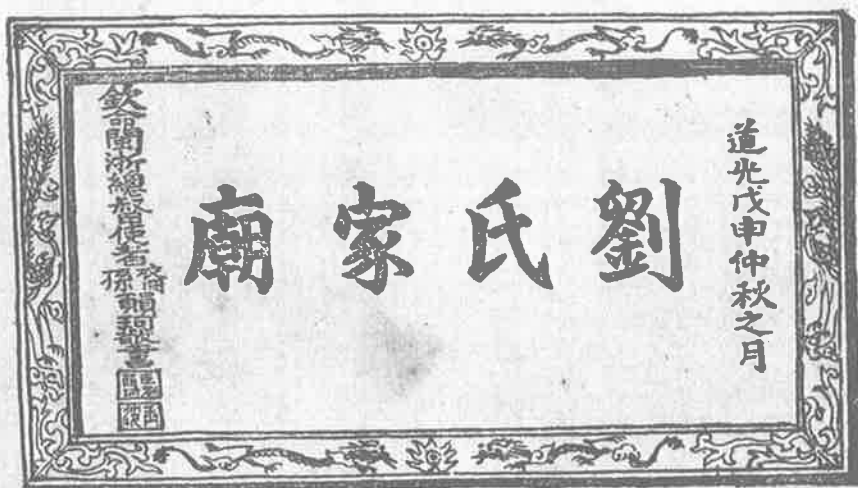 道光戊申仲秋之月
劉氏家廟
欽命閩浙總督使者裔孫韻珂敬書